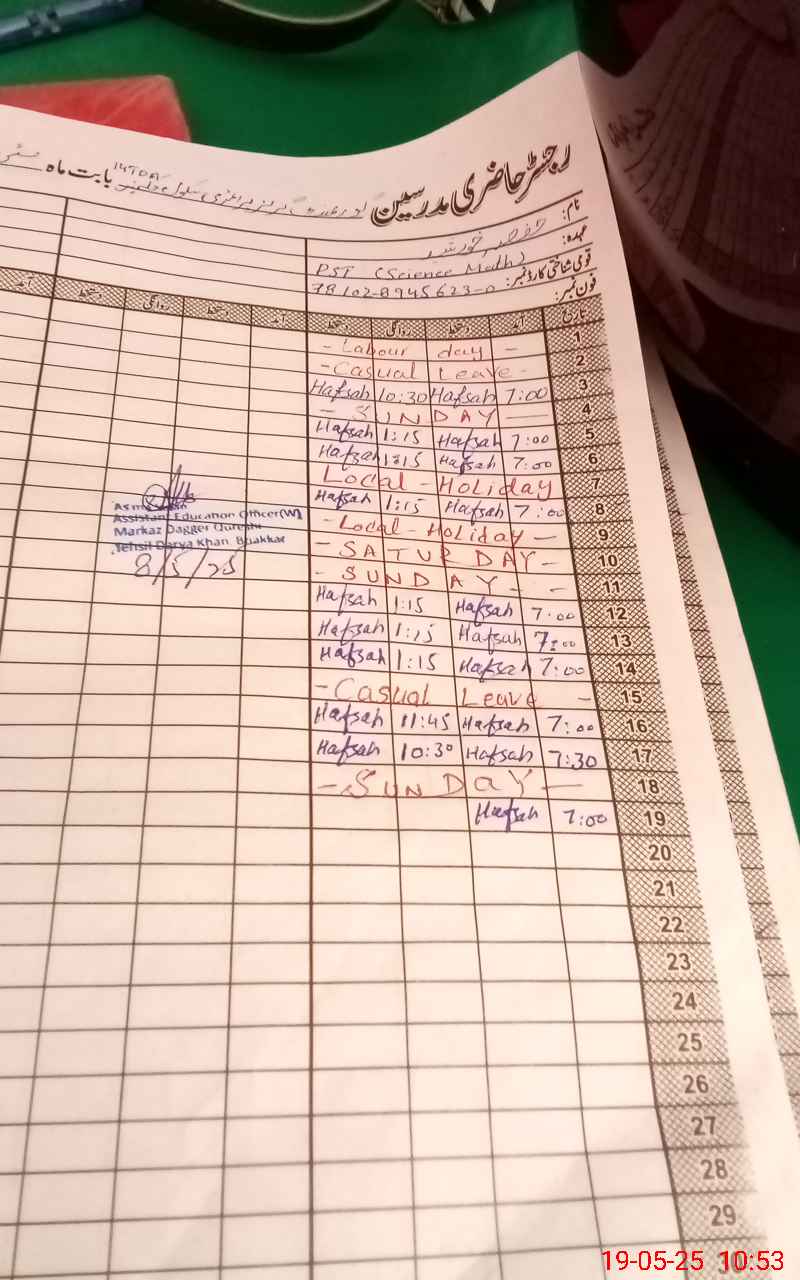 رجسٹر حاضری مدرسین
بابت ماہ
نام:
عہدہ: PST (Science Math)
قومی شناختی کارڈ نمبر:
فون نمبر:
تاریخ آمد دستخط روانگی دستخط آمد دستخط روانگی دستخط آمد
1 - Labour day -
2 - Casual Leave -
3 Hafsah 10:30 Hafsah 7:00
4 - SUNDAY -
5 Hafsah 1:15 Hafsah 7:00
6 Hafsah 1:15 Hafsah 7:00
7 Local - Holiday
8 Hafsah 1:15 Hafsah 7:00
9 - Local - Holiday -
10 - SATURDAY -
11 - SUNDAY - -
12 Hafsah 1:15 Hafsah 7:00
13 Hafsah 1:15 Hafsah 7:00
14 Hafsah 1:15 Hafsah 7:00
15 - Casual Leave -
16 Hafsah 11:45 Hafsah 7:00
17 Hafsah 10:30 Hafsah 7:30
18 - SUNDAY -
19 Hafsah 7:00
20
21
22
23
24
25
26
27
28
29
Assistant Education Officer(W)
Markaz Dagger Qureshi
Tehsil Darya Khan Bhakkar
8/5/25
19-05-25 10:53